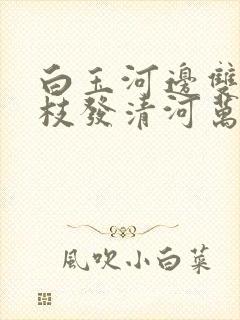 白玉河邊雙
枝發清河萬
風吹小白菜